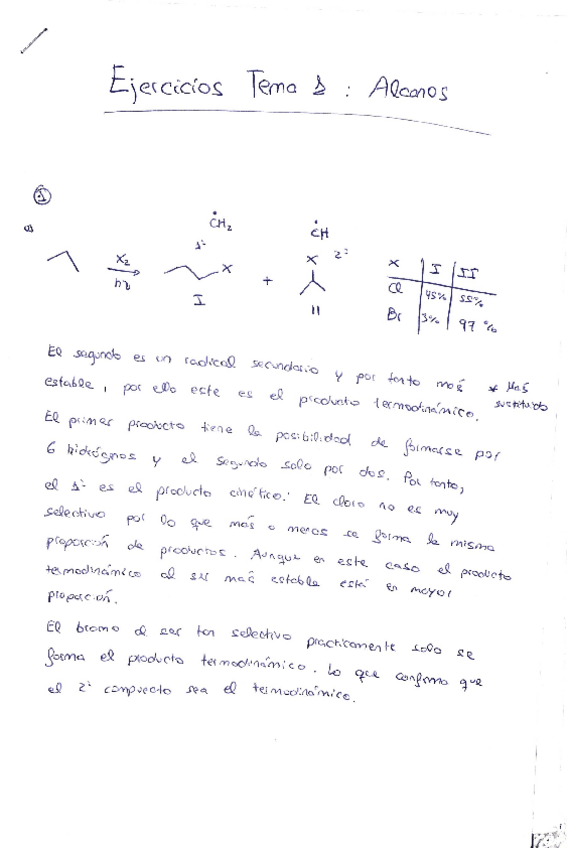 Ejercicios Tema 1 : Alcanos
①
a)
ĊH₂
ĊH
1º
X
2º
X₂
hν
X
I
+
II
X I II
Cl 45% 55%
Br 3% 97 %
El segundo es un radical secundario y por tanto más * Más
estable, por ello este es el producto termodinámico. sustituido
El primer producto tiene la posibilidad de formarse por
6 hidrógnos y el segundo solo por dos. Por tanto,
el 1º es el producto cinético. El cloro no es muy
selectivo por lo que más o menos se forma la misma
proporción de productos. Aunque en este caso el producto
termodinámico al ser más estable está en mayor
proporción.
El bromo al ser tan selectivo practicamente solo se
forma el producto termodinámico. Lo que confirma que
el 2º compuesto sea el termodinámico.